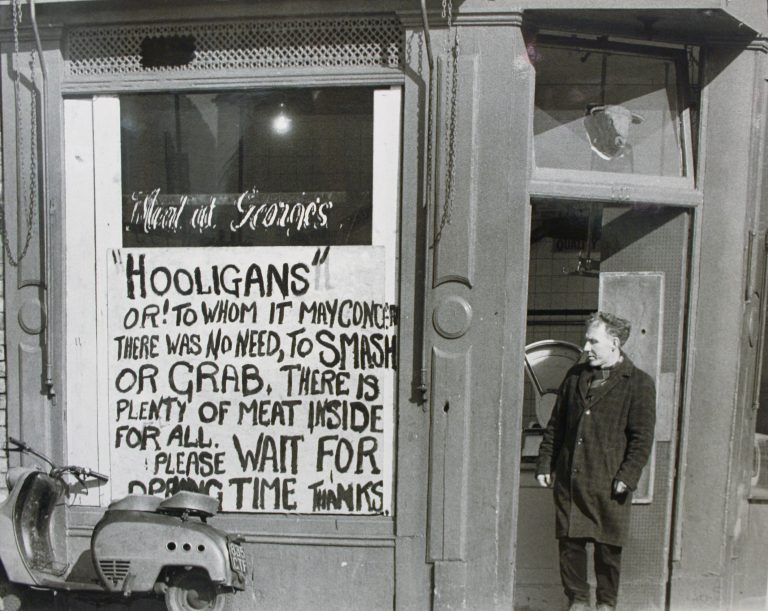 Meat at George's
"HOOLIGANS"
OR! TO WHOM IT MAY CONCERN
THERE WAS NO NEED, TO SMASH
OR GRAB. THERE IS
PLENTY OF MEAT INSIDE
FOR ALL.
PLEASE WAIT FOR
OPENING TIME THANKS.
CTF